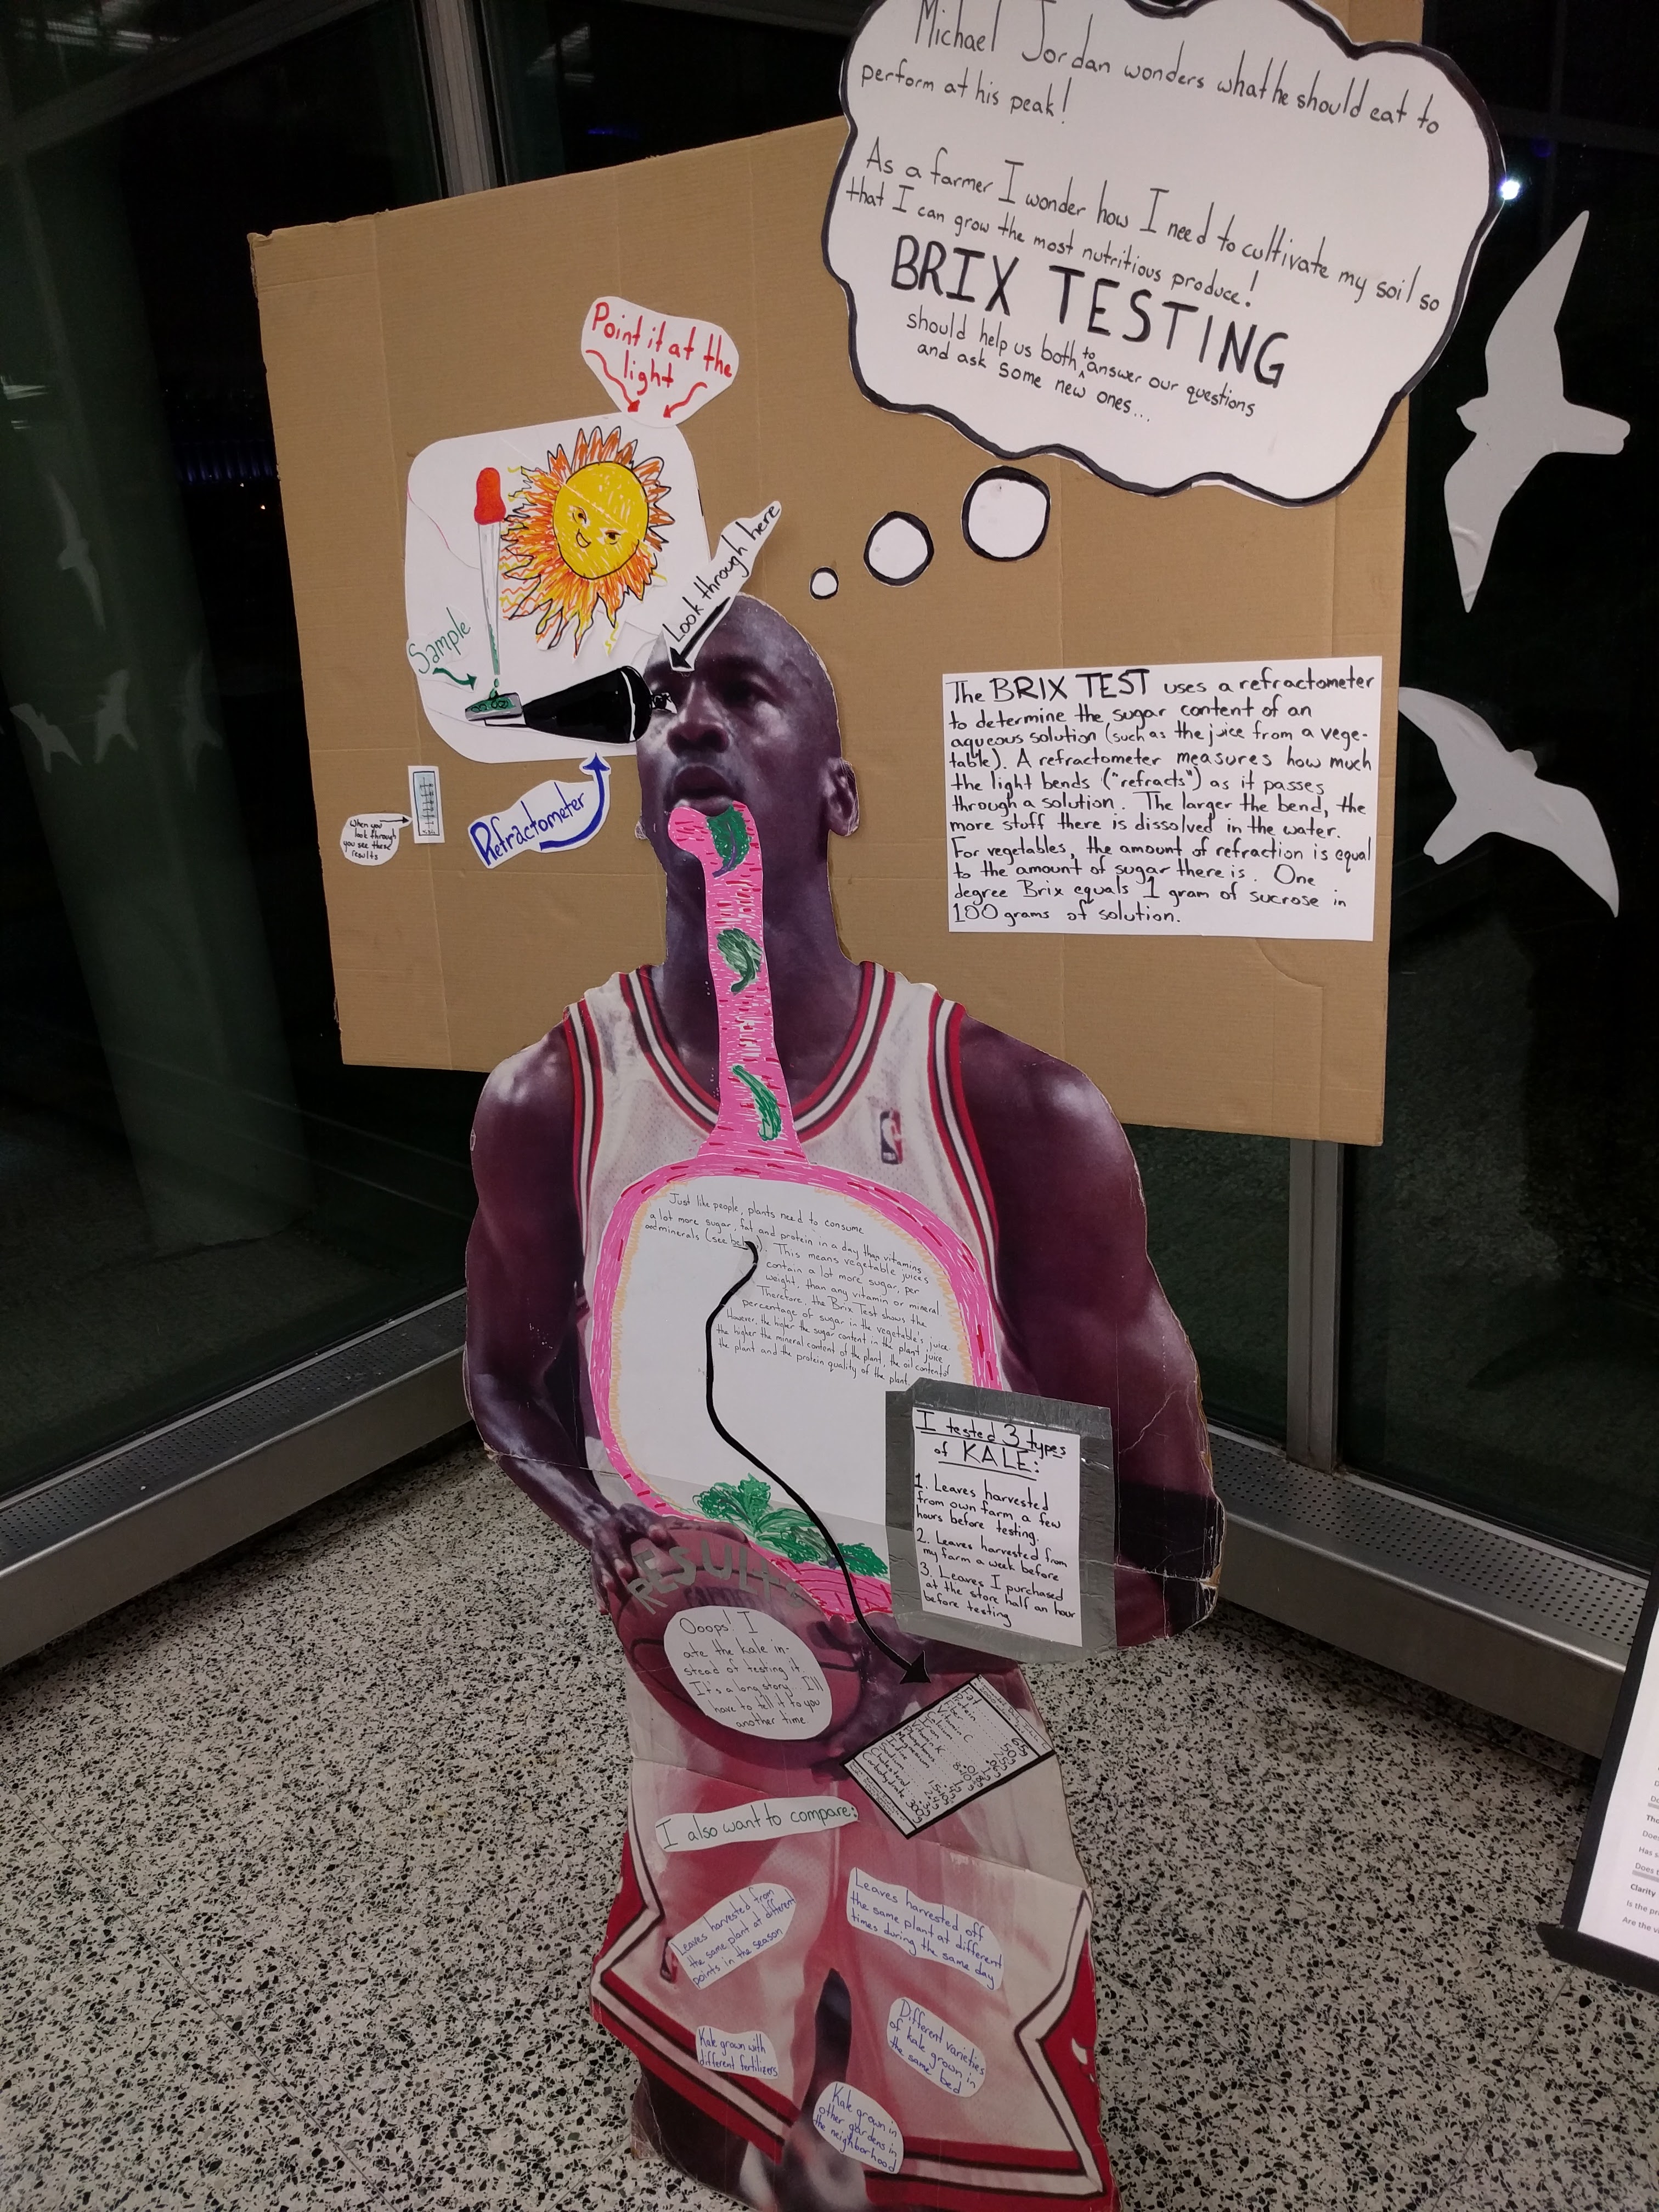 Michael Jordan wonders what he should eat to
perform at his peak!
As a farmer I wonder how I need to cultivate my soil so
that I can grow the most nutritious produce!
BRIX TESTING
should help us both to answer our questions
and ask some new ones...
Point it at the
light
Look through here
Sample
Refractometer
When you
look through
you see these
results
The BRIX TEST uses a refractometer
to determine the sugar content of an
aqueous solution (such as the juice from a vege-
table). A refractometer measures how much
the light bends ("refracts") as it passes
through a solution. The larger the bend, the
more stuff there is dissolved in the water.
For vegetables, the amount of refraction is equal
to the amount of sugar there is. One
degree Brix equals 1 gram of sucrose in
100 grams of solution.
Just like people, plants need to consume
a lot more sugar, fat and protein in a day than vitamins
and minerals (see below). This means vegetable juices
contain a lot more sugar, per
weight, than any vitamin or mineral
Therefore, the Brix Test shows the
percentage of sugar in the vegetable's juice.
However, the higher the sugar content in the plant juice
the higher the mineral content of the plant, the oil content of
the plant and the protein quality of the plant.
I tested 3 types
of KALE:
1. Leaves harvested
from own farm a few
hours before testing
2. Leaves harvested from
my farm a week before
3. Leaves I purchased
at the store half an hour
before testing
RESULTS
Ooops! I
ate the kale in-
stead of testing it.
It's a long story. I'll
have to tell it to you
another time
Fat
Protein
Fiber
Vitamin C
Calcium
Vitamin K
Phosphorus
Magnesium
Iron
Sodium
Cholesterol
Carbohydrate
65g
50g
300g
I also want to compare:
Leaves harvested from
the same plant at different
points in the season
Leaves harvested off
the same plant at different
times during the same day
Kale grown with
different fertilizers
Different varieties
of kale grown in
the same bed
Kale grown in
other gardens in
the neighborhood
Does
Has s
Does t
Clarity
Is the pr
Are the v